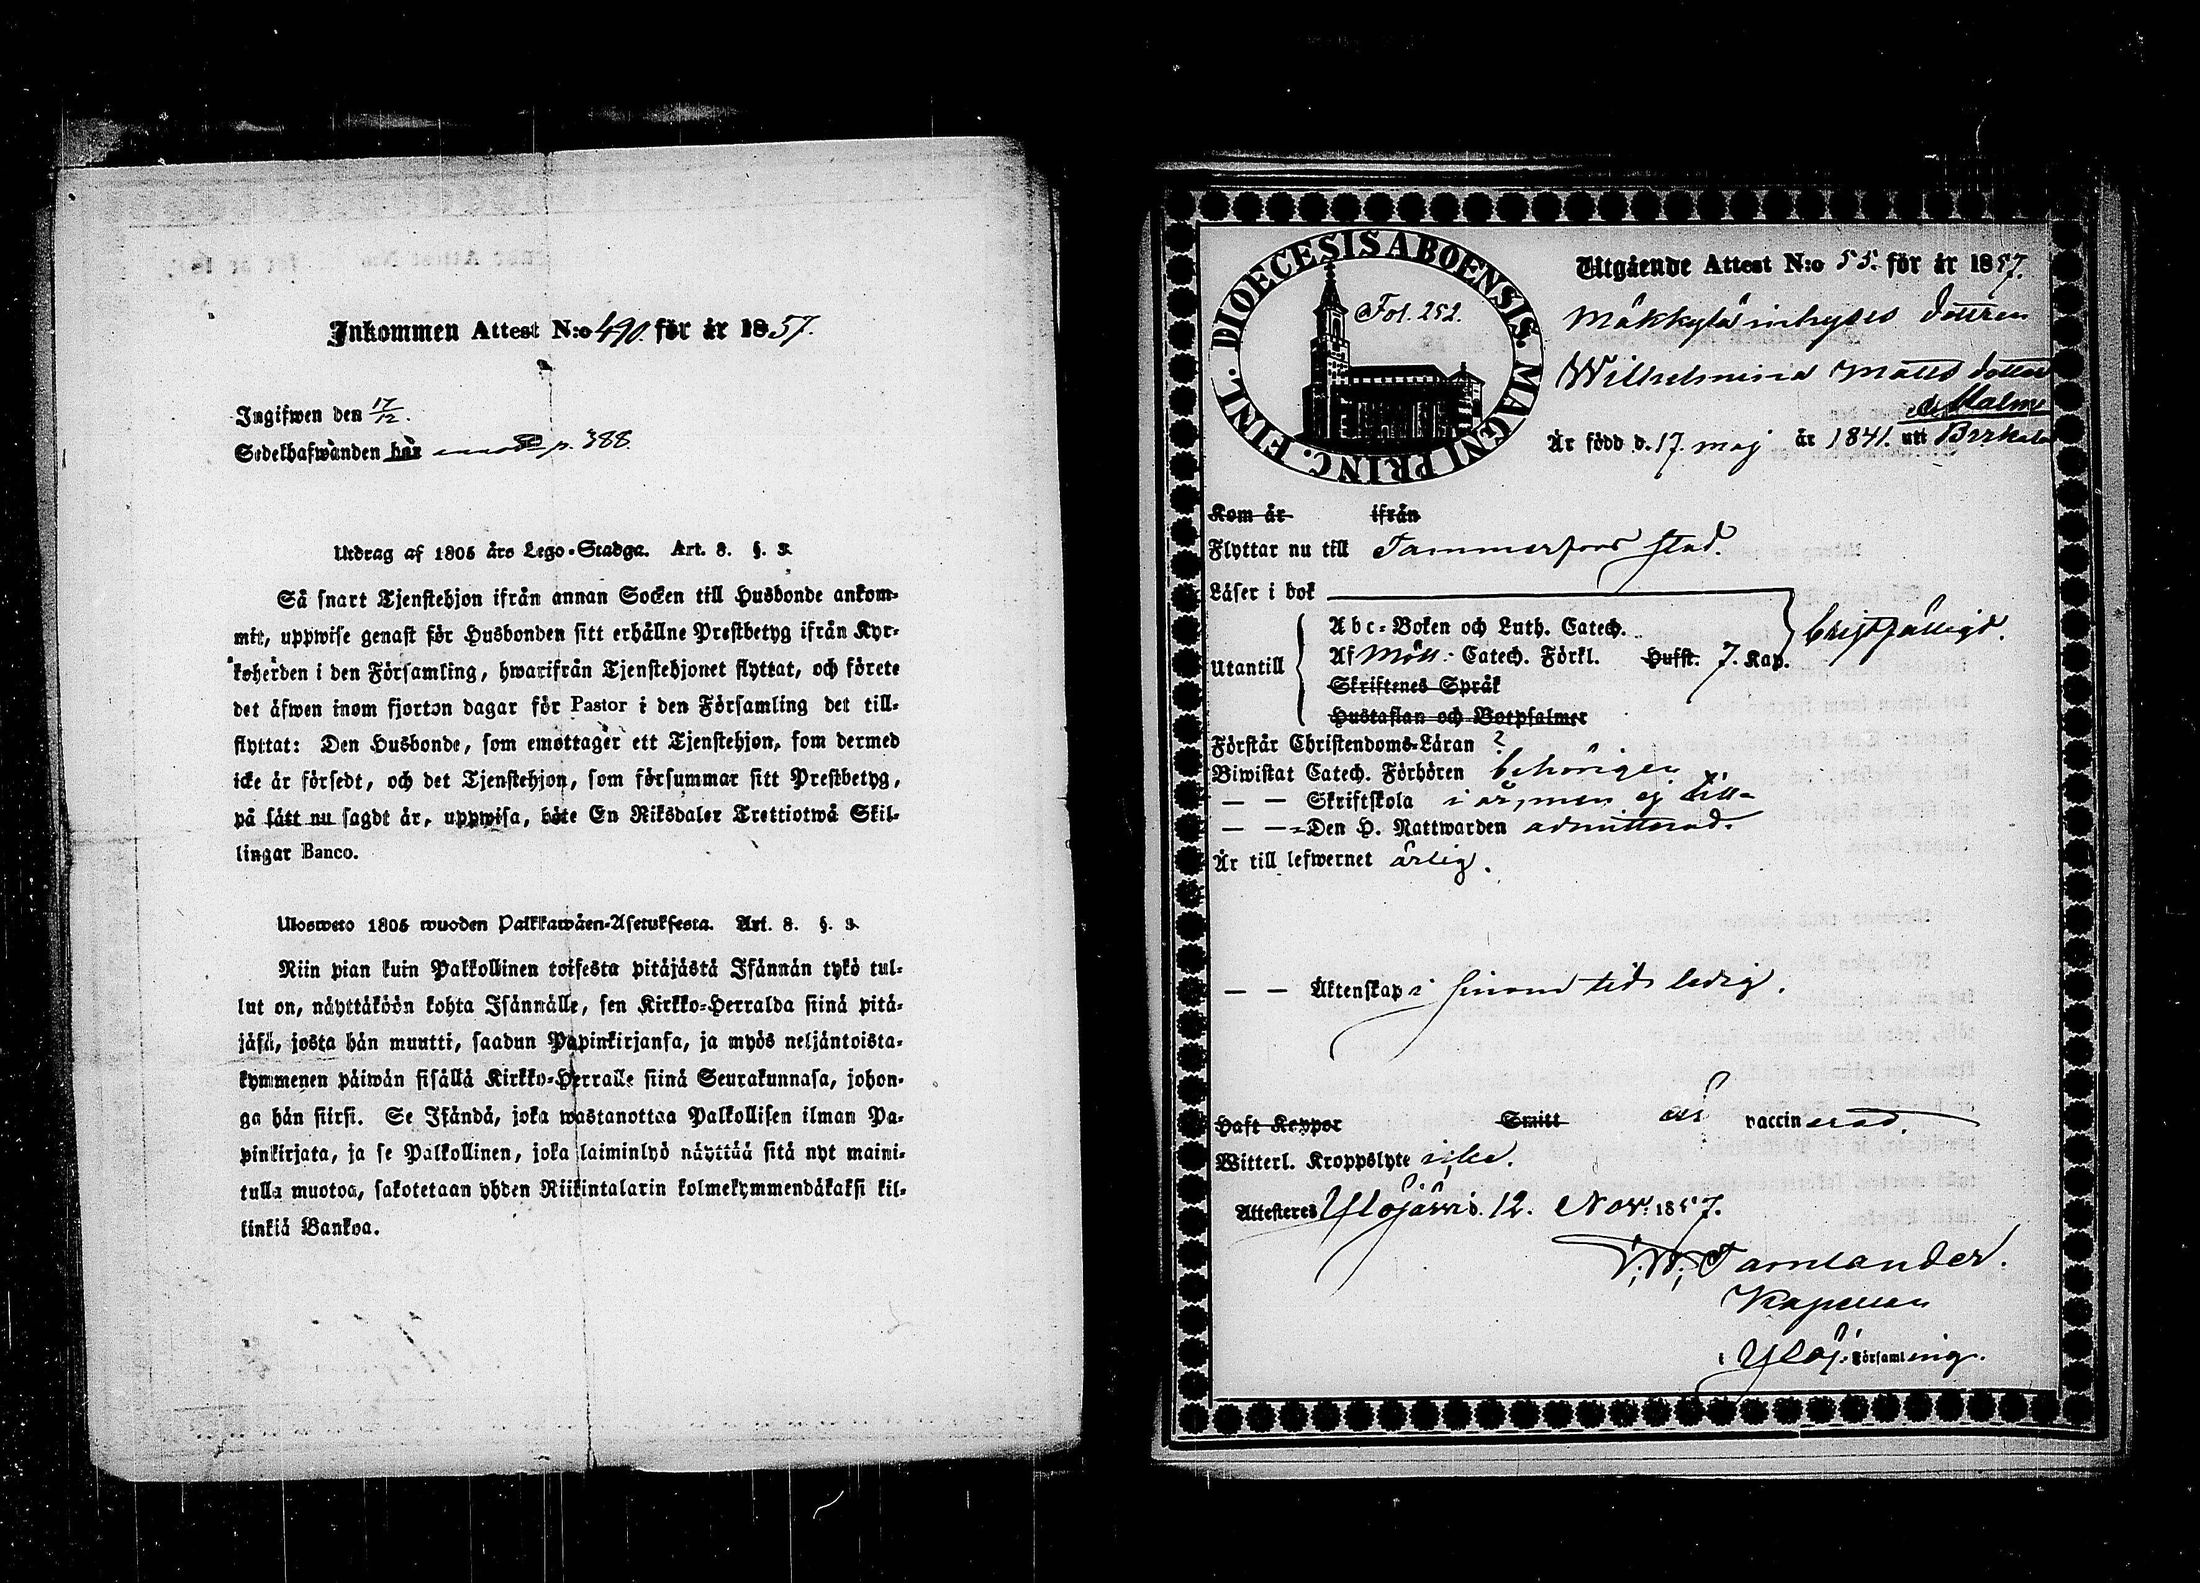 Inkommen Attest N:o 490. för år 1857.
Ingifwen den 17/12.
Sedelhafwanden här p. 388.
Utdrag af 1805 års Lego-Stadga. Art. 8. §. 3.
Så snart Tjenstehjon ifrån annan Socken till Husbonde ankom-
mit, uppwise genast för Husbonden sitt erhållne Prestbetyg ifrån Kyr-
koherden i den Församling, hwarifrån Tjenstehjonet flyttat, och förete
det äfwen inom fjorton dagar för Pastor i den Församling det till-
flyttat: Den Husbonde, som emottager ett Tjenstehjon, som dermed
icke är försedt, och det Tjenstehjon, som försummar sitt Prestbetyg,
på sätt nu sagdt är, uppwisa, böte En Riksdaler Trettiotwå Skil-
lingar Banco.
Ulosweto 1805 wuoden Palkkawäen-Asetuksesta. Art. 8. §. 3.
Niin pian kuin Palkollinen toisesta pitäjästä Isännän tykö tul-
lut on, näyttäköön kohta Isännälle, sen Kirkko-Herralda siinä pitä-
jäsä, josta hän muutti, saadun Papinkirjansa, ja myös neljäntoista-
kymmenen päiwän sisällä Kirkko-Herralle siinä Seurakunnasa, johon-
ga hän siirsi. Se Isändä, joka wastanottaa Palkollisen ilman Pa-
pinkirjata, ja se Palkollinen, joka laiminlyö näyttää sitä nyt maini-
tulla muotoa, sakotetaan yhden Riikintalarin kolmekymmendäkaksi kil-
linkiä Bankoa.
DIOECESIS ABOENSIS. MAGNI PRINC. FINL.
Fol. 252.
Utgående Attest N:o 55. för år 1857.
Mäkkylä inhyses dottren
Wilhelmina Matts dotter
Malm
Är född d. 17. maj år 1841. uti Birkala
Kom år ifrån
Flyttar nu till Tammerfors stad.
Läser i bok
Utantill
Abc-Boken och Luth. Catech.
Af Möll: Catech. Förkl. Hufst. 7. Kap.
Skriftenes Språk
Hustaflan och Botpsalmer
bristfälligt.
Förstår Christendoms-Läran ?
Biwistat Catech. Förhören behörigen
— — Skriftskola i år, men ej till-
— — Den H. Nattwarden admitterad.
Är till lefwernet ärlig.
— — Äktenskap i sinom tid ledig.
Haft Koppor Smitt vaccinerad.
Witterl. Kroppslyte icke.
Attesteres Ylöjärwi d. 12. Nov. 1857.
Tamlander.
Kapellan
i Ylöj. Församling.